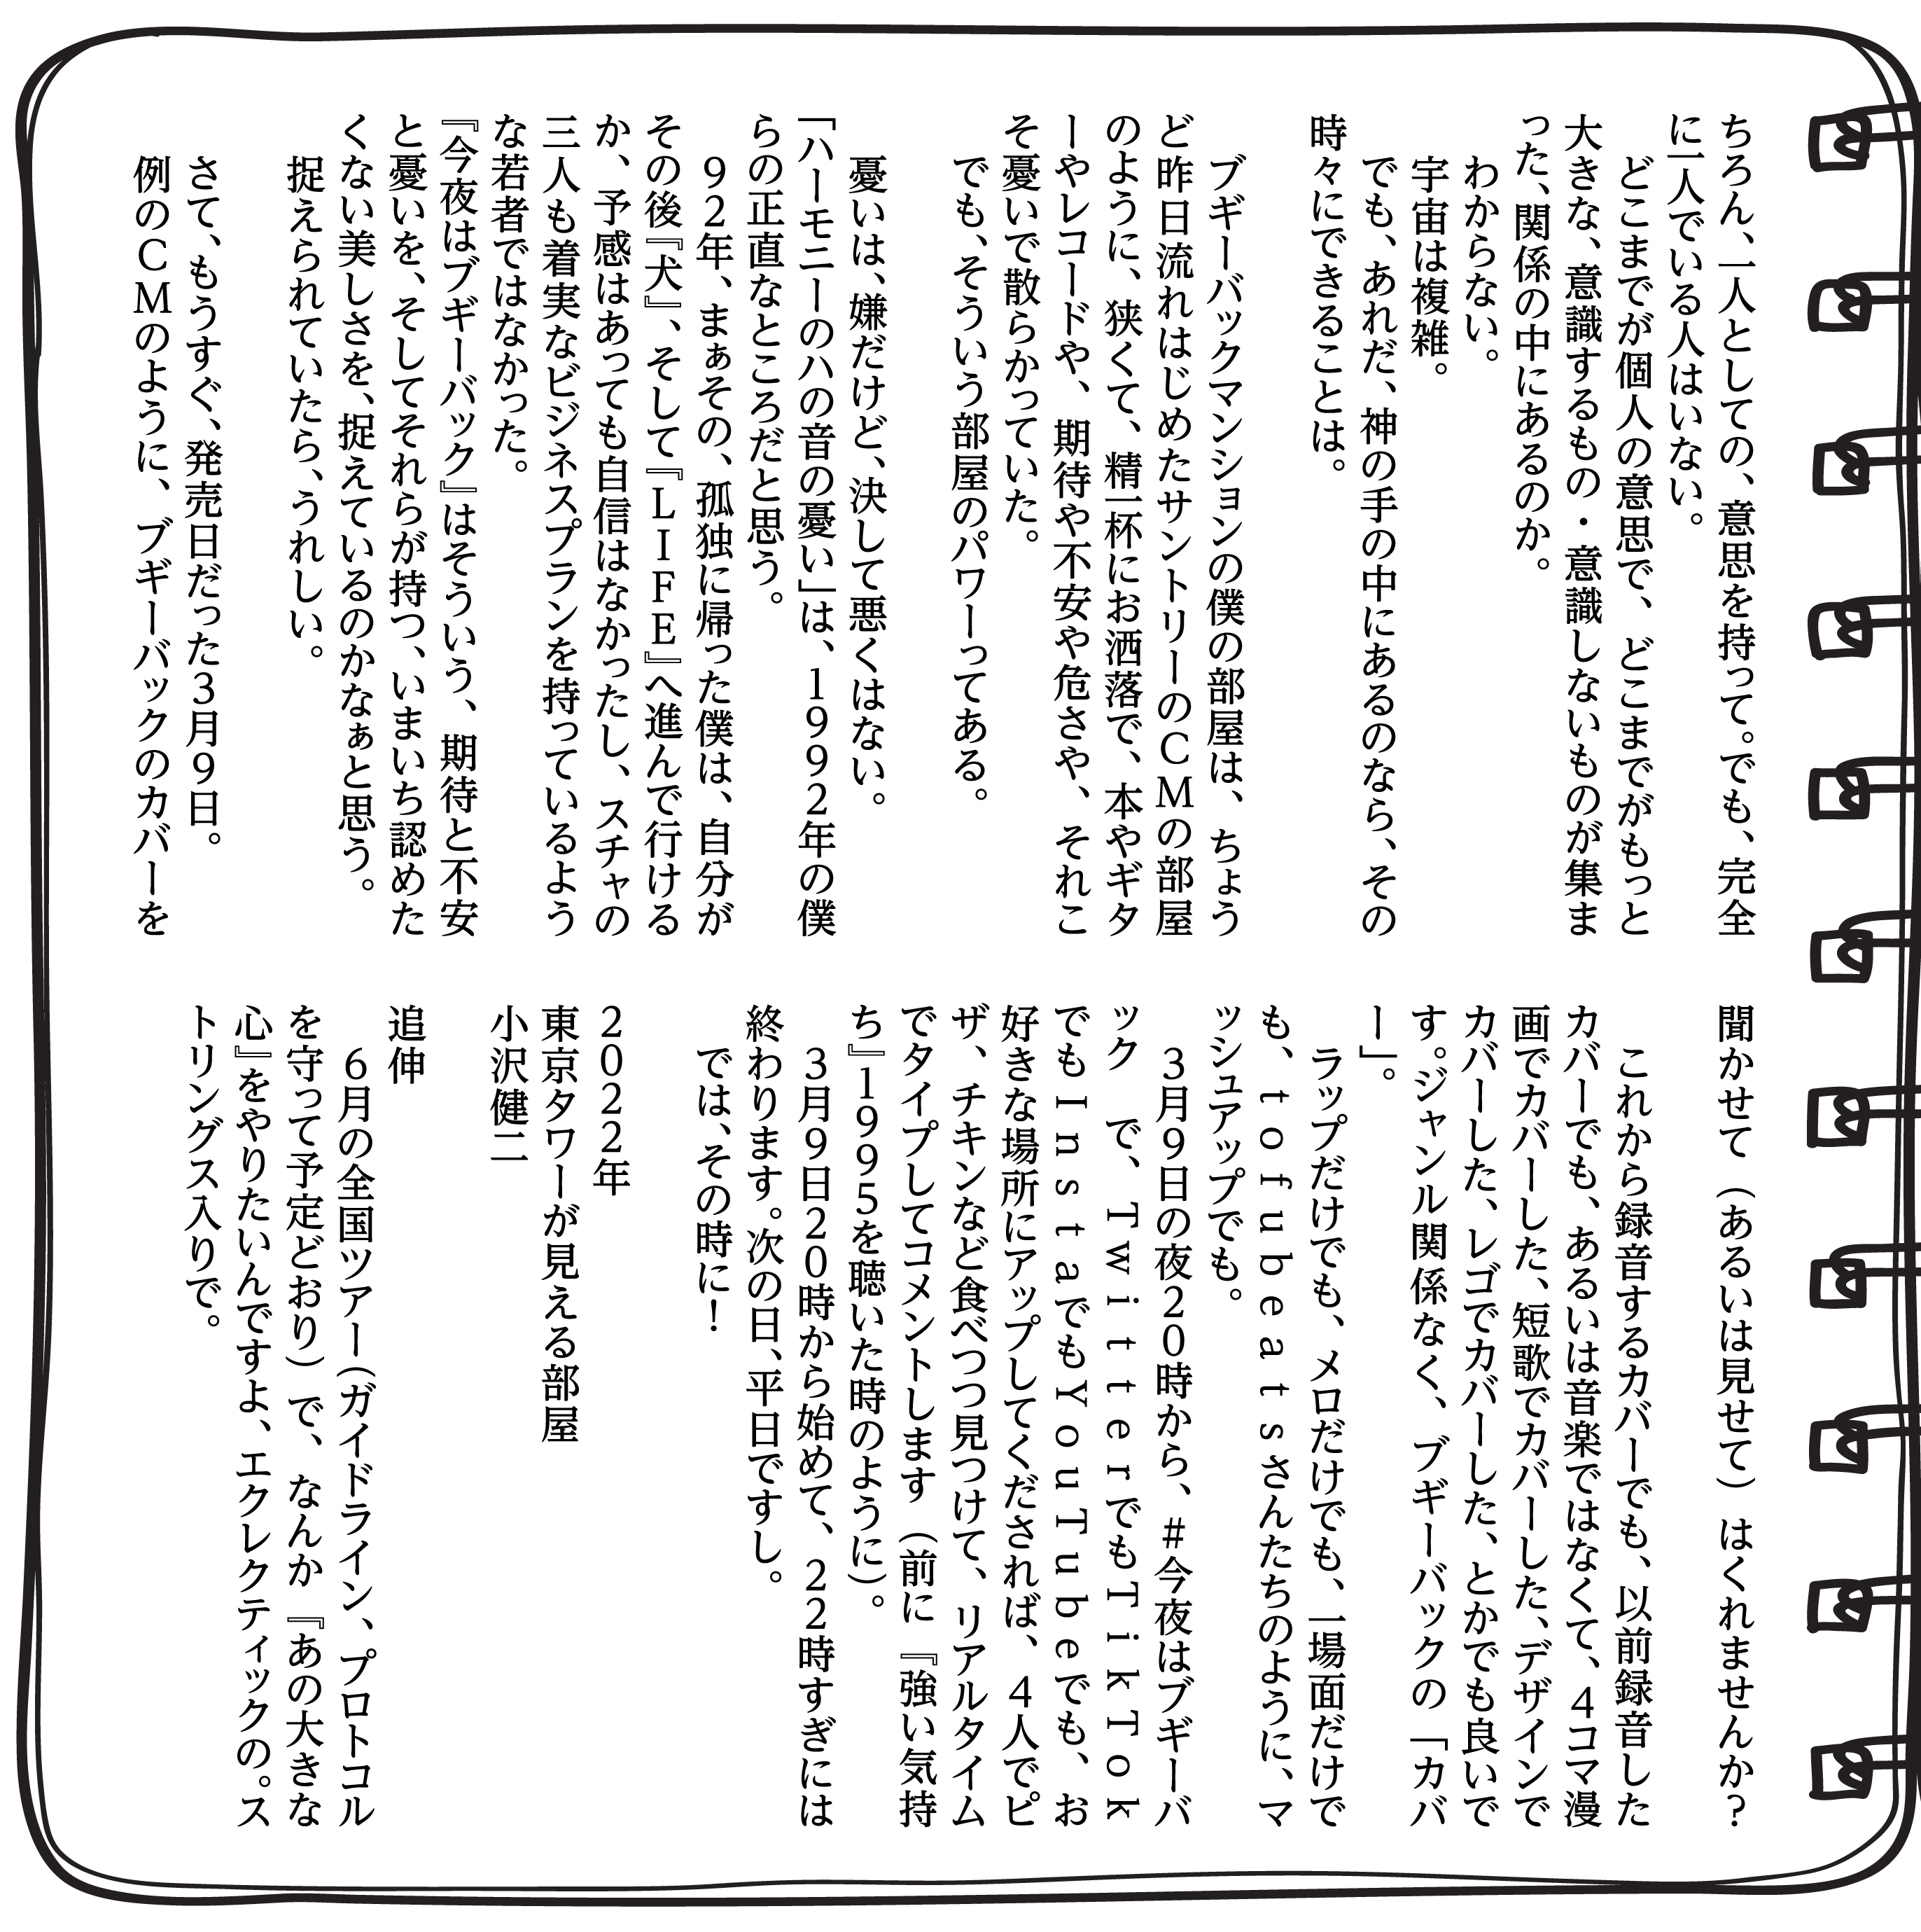 ちろん、一人としての、意思を持って。でも、完全
に一人でいる人はいない。
どこまでが個人の意思で、どこまでがもっと
大きな、意識するもの・意識しないものが集ま
った、関係の中にあるのか。
わからない。
宇宙は複雑。
でも、あれだ、神の手の中にあるのなら、その
時々にできることは。
ブギーバックマンションの僕の部屋は、ちょう
ど昨日流れはじめたサントリーのＣＭの部屋
のように、狭くて、精一杯にお洒落で、本やギタ
ーやレコードや、期待や不安や危さや、それこ
そ憂いで散らかっていた。
でも、そういう部屋のパワーってある。
憂いは、嫌だけど、決して悪くはない。
「ハーモニーのハの音の憂い」は、１９９２年の僕
らの正直なところだと思う。
９２年、まぁその、孤独に帰った僕は、自分が
その後『犬』、そして『ＬＩＦＥ』へ進んで行ける
か、予感はあっても自信はなかったし、スチャの
三人も着実なビジネスプランを持っているよう
な若者ではなかった。
『今夜はブギーバック』はそういう、期待と不安
と憂いを、そしてそれらが持つ、いまいち認めた
くない美しさを、捉えているのかなぁと思う。
捉えられていたら、うれしい。
さて、もうすぐ、発売日だった３月９日。
例のＣＭのように、ブギーバックのカバーを
聞かせて（あるいは見せて）はくれませんか？
これから録音するカバーでも、以前録音した
カバーでも、あるいは音楽ではなくて、４コマ漫
画でカバーした、短歌でカバーした、デザインで
カバーした、レゴでカバーした、とかでも良いで
す。ジャンル関係なく、ブギーバックの「カバ
ー」。
ラップだけでも、メロだけでも、一場面だけで
も、ｔｏｆｕｂｅａｔｓさんたちのように、マ
ッシュアップでも。
３月９日の夜２０時から、＃今夜はブギーバ
ック　で、ＴｗｉｔｔｅｒでもＴｉｋＴｏｋ
でもＩｎｓｔａでもＹｏｕＴｕｂｅでも、お
好きな場所にアップしてくだされば、４人でピ
ザ、チキンなど食べつつ見つけて、リアルタイム
でタイプしてコメントします（前に『強い気持
ち』１９９５を聴いた時のように）。
３月９日２０時から始めて、２２時すぎには
終わります。次の日、平日ですし。
では、その時に！
２０２２年
東京タワーが見える部屋
小沢健二
追伸
６月の全国ツアー（ガイドライン、プロトコル
を守って予定どおり）で、なんか『あの大きな
心』をやりたいんですよ、エクレクティックの。ス
トリングス入りで。